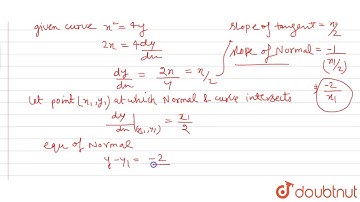 given curve x² = 4y
2x = 4 dy/dx
dy/dx = 2x/4 = x/2
slope of tangent = x/2
slope of Normal = -1/(x/2)
-2/x₁
let point (x₁, y₁) at which Normal & curve intersects
dy/dx |(x₁, y₁) = x₁/2
equ of Normal
y - y₁ = -2
doubtnut